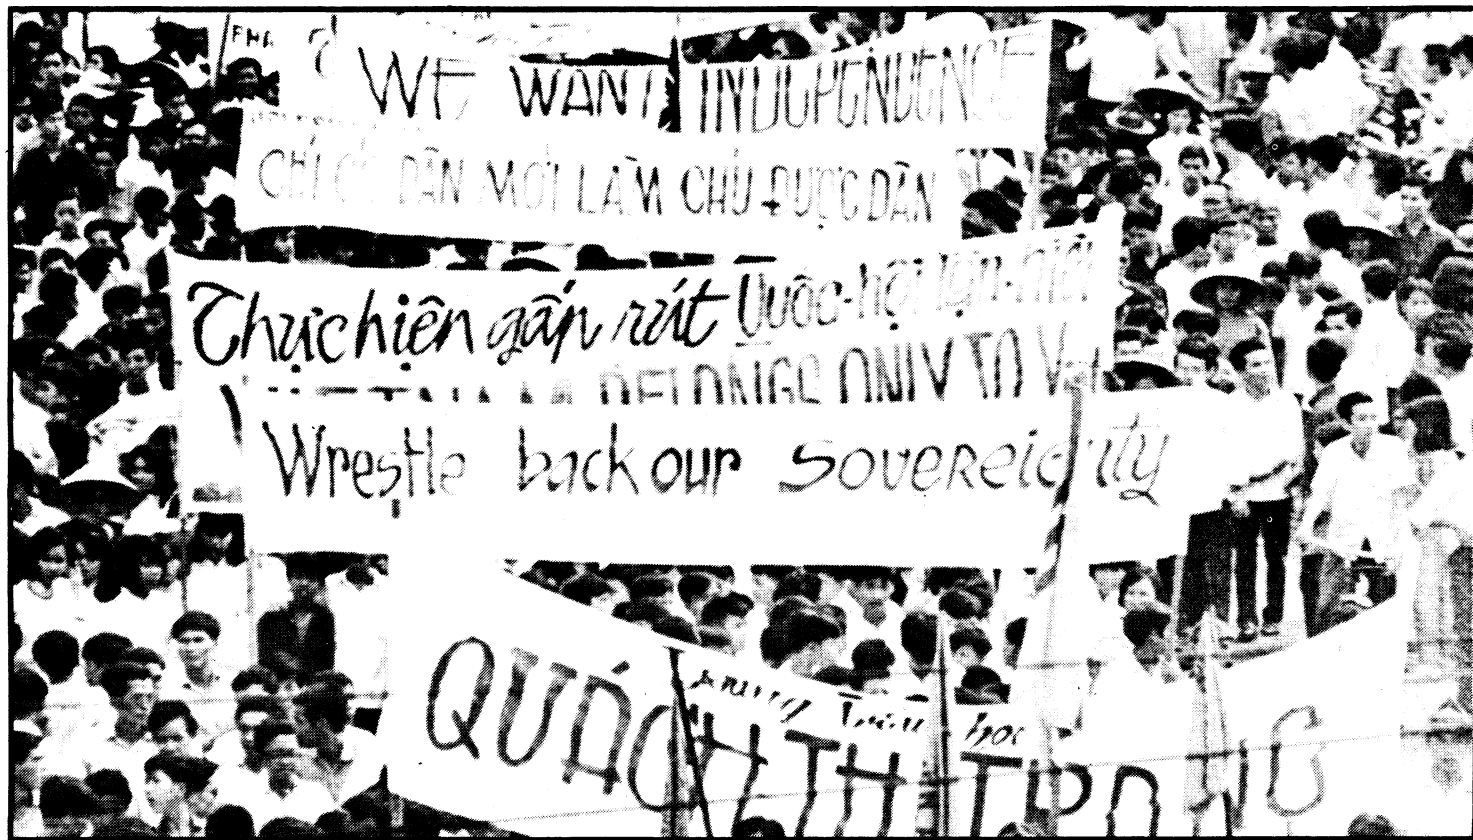 WE WANT INDEPENDENCE
CHỈ CÓ DÂN MỚI LÀM CHỦ ĐƯỢC DÂN
Thực hiện gấp rút Quốc-hội lập-hiến
VIETNAM BELONGS ONLY TO
Wrestle back our Sovereignty
học
QUÁCH THỊ TRANG